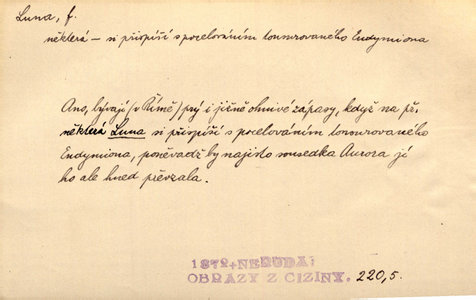 Luna, f.
některá – si přispíší s pocelováním tonsurovaného Endymiona
Ano, bývají /v Římě/ prý i jižně ohnivé zápasy, když na př.
některá Luna si přispíší s pocelováním tonsurovaného
Endymiona, poněvadž by najisto susedka Aurora jí
ho ale hned převzala.
1872+NERUDA:
OBRAZY Z CIZINY. 220,5.